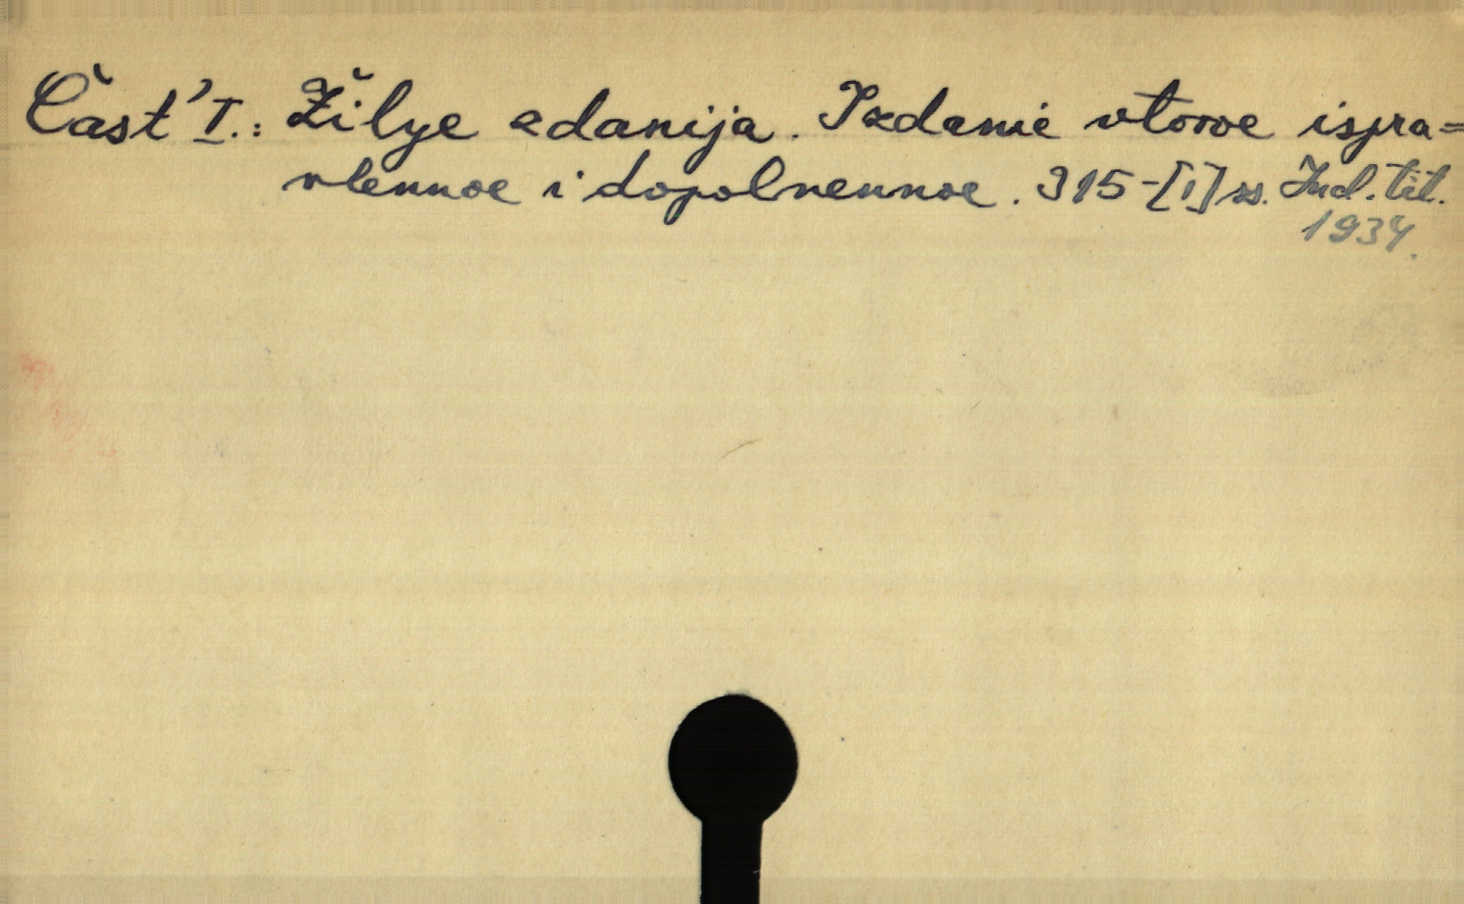 Čast' I.: Žilye zdanija. Izdanie vtoroe ispra=
vlennoe i dopolnennoe. 315-[1] ss. Ind. tit.
1934.